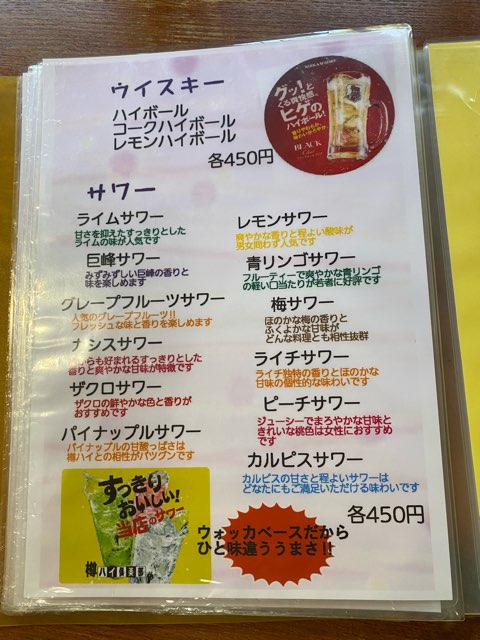 ウイスキー
ハイボール
コークハイボール
レモンハイボール
各450円
グッ!と
くる爽快感。
ヒゲの
ハイボール!
香りやわらか、
味わいかろやか
BLACK
Clear
サワー
ライムサワー
甘さを抑えたすっきりとした
ライムの味が人気です
巨峰サワー
みずみずしい巨峰の香りと
味を楽しめます
グレープフルーツサワー
人気のグレープフルーツ!!
フレッシュな味と香りを楽しめます
カシスサワー
からも好まれるすっきりとした
香りと爽やかな甘味が特徴です
ザクロサワー
ザクロの鮮やかな色と香りが
おすすめです
パイナップルサワー
パイナップルの甘酸っぱさは
樽ハイとの相性がバツグンです
レモンサワー
爽やかな香りと程よい酸味が
男女問わず人気です
青リンゴサワー
フルーティーで爽やかな青リンゴ
の軽い口当たりが若者に好評です
梅サワー
ほのかな梅の香りと
ふくよかな甘味が
どんな料理とも相性抜群
ライチサワー
ライチ独特の香りとほのかな
甘味の個性的な味わいです
ピーチサワー
ジューシーでまろやかな甘味と
きれいな桃色は女性におすすめ
です
カルピスサワー
カルピスの甘さと程よいサワーは
どなたにもご満足いただける味わいです
各450円
すっきり
おいしい!
当店のサワー
樽ハイ倶楽部
ウォッカベースだから
ひと味違ううまさ!!